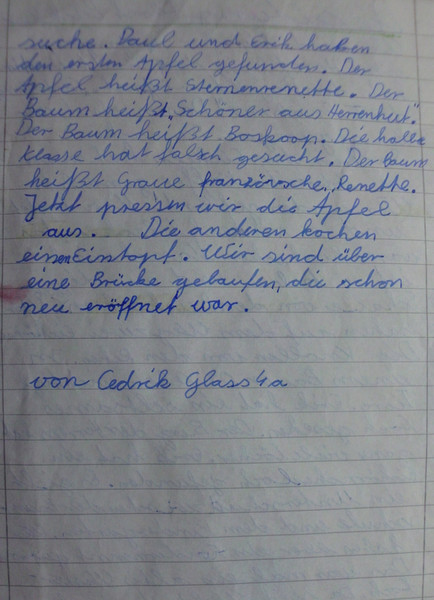 suche. Paul und Erik haben
den ersten Apfel gefunden. Der
Apfel heißt Sternrenette. Der
Baum heißt „Schöner aus Herrenhut“.
Der Baum heißt Boskoop. Die halbe
Klasse hat falsch gesucht. Der Baum
heißt Graue französische Renette.
Jetzt pressen wir die Äpfel
aus. Die anderen kochen
einen Eintopf. Wir sind über
eine Brücke gelaufen, die schon
neu eröffnet war.
von Cedrik Glass 4a